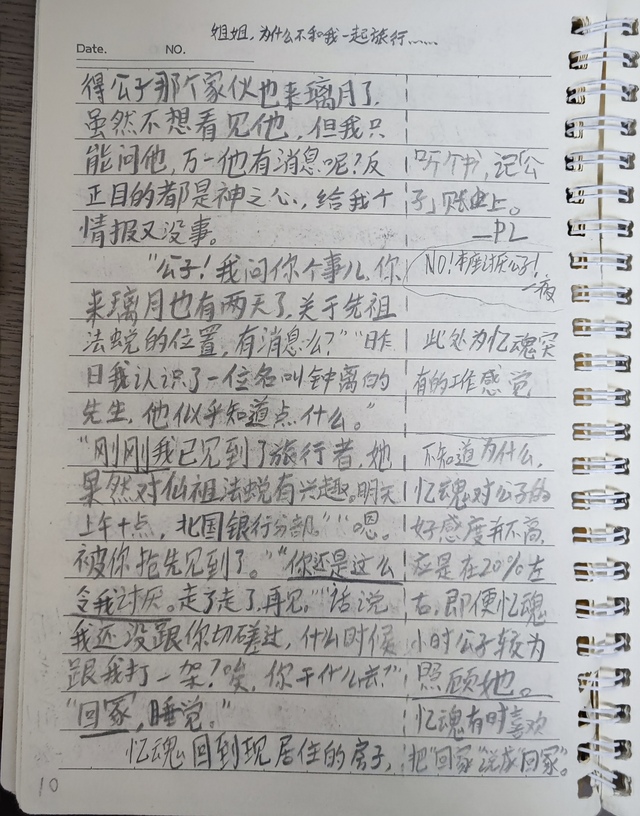 姐姐,为什么不和我一起旅行……
Date. NO.
得公子那个家伙也来璃月了,
虽然不想看见他,但我只
能问他,万一他有消息呢?反
正目的都是神之心,给我个
情报又没事。
“公子!我问你个事儿,你
来璃月也有两天了,关于先祖
法蜕的位置,有消息么?”“昨
日我认识了一位名叫钟离的
先生,他似乎知道点什么。”
“刚刚我已见到了旅行者,她
果然对仙祖法蜕有兴趣。明天
上午十点,北国银行分部。”“嗯。
被你抢先见到了。”“你还是这么
令我讨厌。走了走了,再见。”“话说
我还没跟你切磋过,什么时候
跟我打一架?唉,你干什么去?”
“回冢,睡觉。”
忆魂回到现居住的房子,
听个书,记「公
子」账上。
—PL
NO!本座讨厌公子!
此处为忆魂突
有的工作感觉
不知道为什么,
忆魂对公子的
好感度并不高,
应是在20%左
右,即便忆魂
小时公子较为
照顾她。
忆魂有时喜欢
把“回家”说成“回冢”。
10